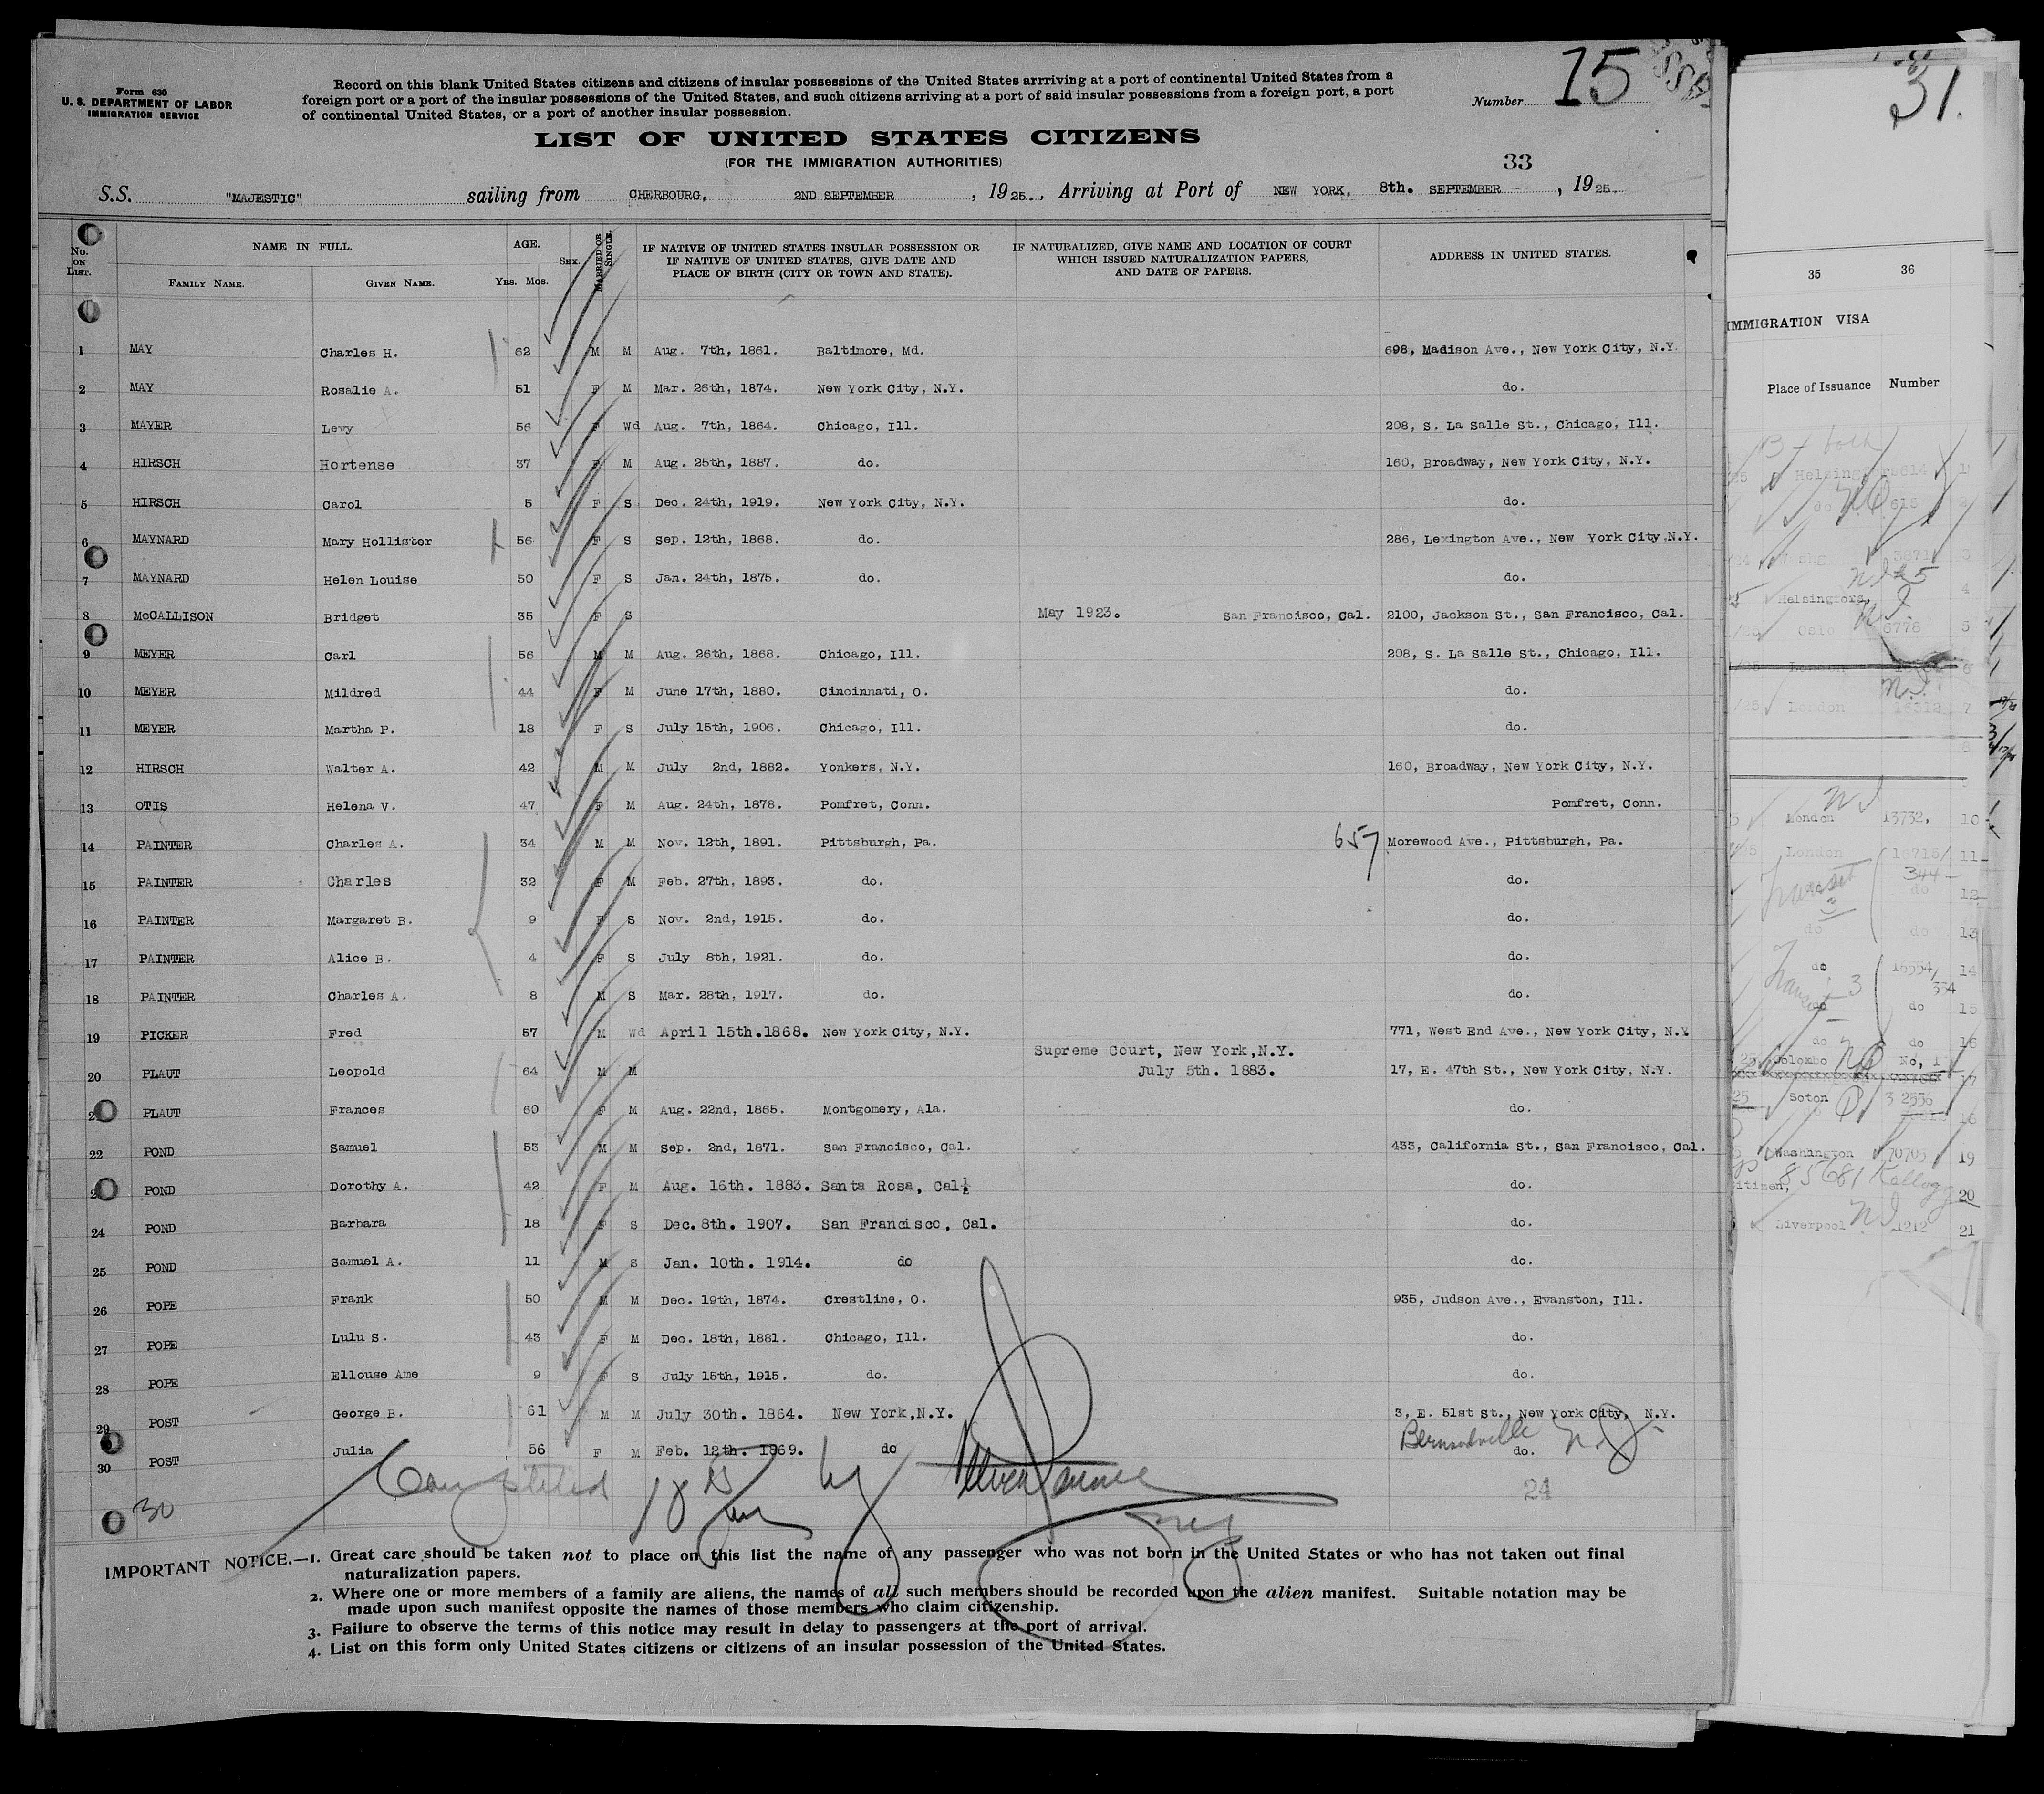 Form 630
U. S. DEPARTMENT OF LABOR
IMMIGRATION SERVICE
Record on this blank United States citizens and citizens of insular possessions of the United States arrriving at a port of continental United States from a
foreign port or a port of the insular possessions of the United States, and such citizens arriving at a port of said insular possessions from a foreign port, a port
of continental United States, or a port of another insular possession.
Number 15
LIST OF UNITED STATES CITIZENS
(FOR THE IMMIGRATION AUTHORITIES)
33
S.S. "MAJESTIC" sailing from CHERBOURG, 2ND SEPTEMBER, 1925., Arriving at Port of NEW YORK. 8th. SEPTEMBER, 1925.
No. ON LIST.
NAME IN FULL.
FAMILY NAME. GIVEN NAME.
AGE.
YRS. MOS.
SEX.
MARRIED OR SINGLE.
IF NATIVE OF UNITED STATES INSULAR POSSESSION OR
IF NATIVE OF UNITED STATES, GIVE DATE AND
PLACE OF BIRTH (CITY OR TOWN AND STATE).
IF NATURALIZED, GIVE NAME AND LOCATION OF COURT
WHICH ISSUED NATURALIZATION PAPERS,
AND DATE OF PAPERS.
ADDRESS IN UNITED STATES.
1 MAY Charles H. 62 M M Aug. 7th, 1861. Baltimore, Md. 698, Madison Ave., New York City, N.Y.
2 MAY Rosalie A. 51 F M Mar. 26th, 1874. New York City, N.Y. do.
3 MAYER Levy 56 F Wd Aug. 7th, 1864. Chicago, Ill. 208, S. La Salle St., Chicago, Ill.
4 HIRSCH Hortense 37 F M Aug. 25th, 1887. do. 160, Broadway, New York City, N.Y.
5 HIRSCH Carol 5 F S Dec. 24th, 1919. New York City, N.Y. do.
6 MAYNARD Mary Hollister 56 F S Sep. 12th, 1868. do. 286, Lexington Ave., New York City, N.Y.
7 MAYNARD Helen Louise 50 F S Jan. 24th, 1875. do. do.
8 McCALLISON Bridget 35 F S May 1923. San Francisco, Cal. 2100, Jackson St., San Francisco, Cal.
9 MEYER Carl 56 M M Aug. 26th, 1868. Chicago, Ill. 208, S. La Salle St., Chicago, Ill.
10 MEYER Mildred 44 F M June 17th, 1880. Cincinnati, O. do.
11 MEYER Martha P. 18 F S July 15th, 1906. Chicago, Ill. do.
12 HIRSCH Walter A. 42 M M July 2nd, 1882. Yonkers, N.Y. 160, Broadway, New York City, N.Y.
13 OTIS Helena V. 47 F M Aug. 24th, 1878. Pomfret, Conn. Pomfret, Conn.
14 PAINTER Charles A. 34 M M Nov. 12th, 1891. Pittsburgh, Pa. 657 Morewood Ave., Pittsburgh, Pa.
15 PAINTER Charles 32 F M Feb. 27th, 1893. do. do.
16 PAINTER Margaret B. 9 F S Nov. 2nd, 1915. do. do.
17 PAINTER Alice B. 4 F S July 8th, 1921. do. do.
18 PAINTER Charles A. 8 M S Mar. 28th, 1917. do. do.
19 PICKER Fred 57 M Wd April 15th.1868. New York City, N.Y. 771, West End Ave., New York City, N.Y.
Supreme Court, New York,N.Y.
20 PLAUT Leopold 64 M M July 5th. 1883. 17, E. 47th St., New York City, N.Y.
2 PLAUT Frances 60 F M Aug. 22nd, 1865. Montgomery, Ala. do.
22 POND Samuel 53 M M Sep. 2nd, 1871. San Francisco, Cal. 433, California St., San Francisco, Cal.
2 POND Dorothy A. 42 F M Aug. 16th. 1883. Santa Rosa, Cal. do.
24 POND Barbara 18 F S Dec. 8th. 1907. San Francisco, Cal. do.
25 POND Samuel A. 11 M S Jan. 10th. 1914. do do.
26 POPE Frank 50 M M Dec. 19th, 1874. Crestline, O. 935, Judson Ave., Evanston, Ill.
27 POPE Lulu S. 43 F M Dec. 18th, 1881. Chicago, Ill. do.
28 POPE Ellouse Ame 9 F S July 15th, 1915. do. do.
29 POST George B. 61 M M July 30th. 1864. New York,N.Y. 3, E. 51st St., New York City, N.Y.
Bernardsville N.J.
30 POST Julia 56 F M Feb. 12th. 1869. do do.
Completed by
24
30
IMPORTANT NOTICE.—1. Great care should be taken not to place on this list the name of any passenger who was not born in the United States or who has not taken out final
naturalization papers.
2. Where one or more members of a family are aliens, the names of all such members should be recorded upon the alien manifest. Suitable notation may be
made upon such manifest opposite the names of those members who claim citizenship.
3. Failure to observe the terms of this notice may result in delay to passengers at the port of arrival.
4. List on this form only United States citizens or citizens of an insular possession of the United States.
31.
35 36
IMMIGRATION VISA
Place of Issuance Number
Helsingfors 614 1
do 615
3
4
Helsingfors,
Oslo 6778 5
London 6
London 16312 7
8
London 13732, 10
London 16715/ 11
344
do 12
do do 13
Transit 3
do 16554/ 14
334
do 15
do do 16
Colombo No, 1
17
Soton 3 2556
18
Washington 70703 19
85681 Kellogg
20
Liverpool 1212 21